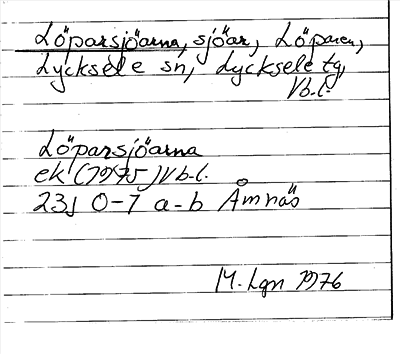 Löparsjöarna, sjöar, Löparen,
Lycksele sn, Lycksele tg,
Vb.l.
Löparsjöarna
ek (1975) Vb.l.
23J 0-7 a-b Åmnäs
M. Lgn 1976